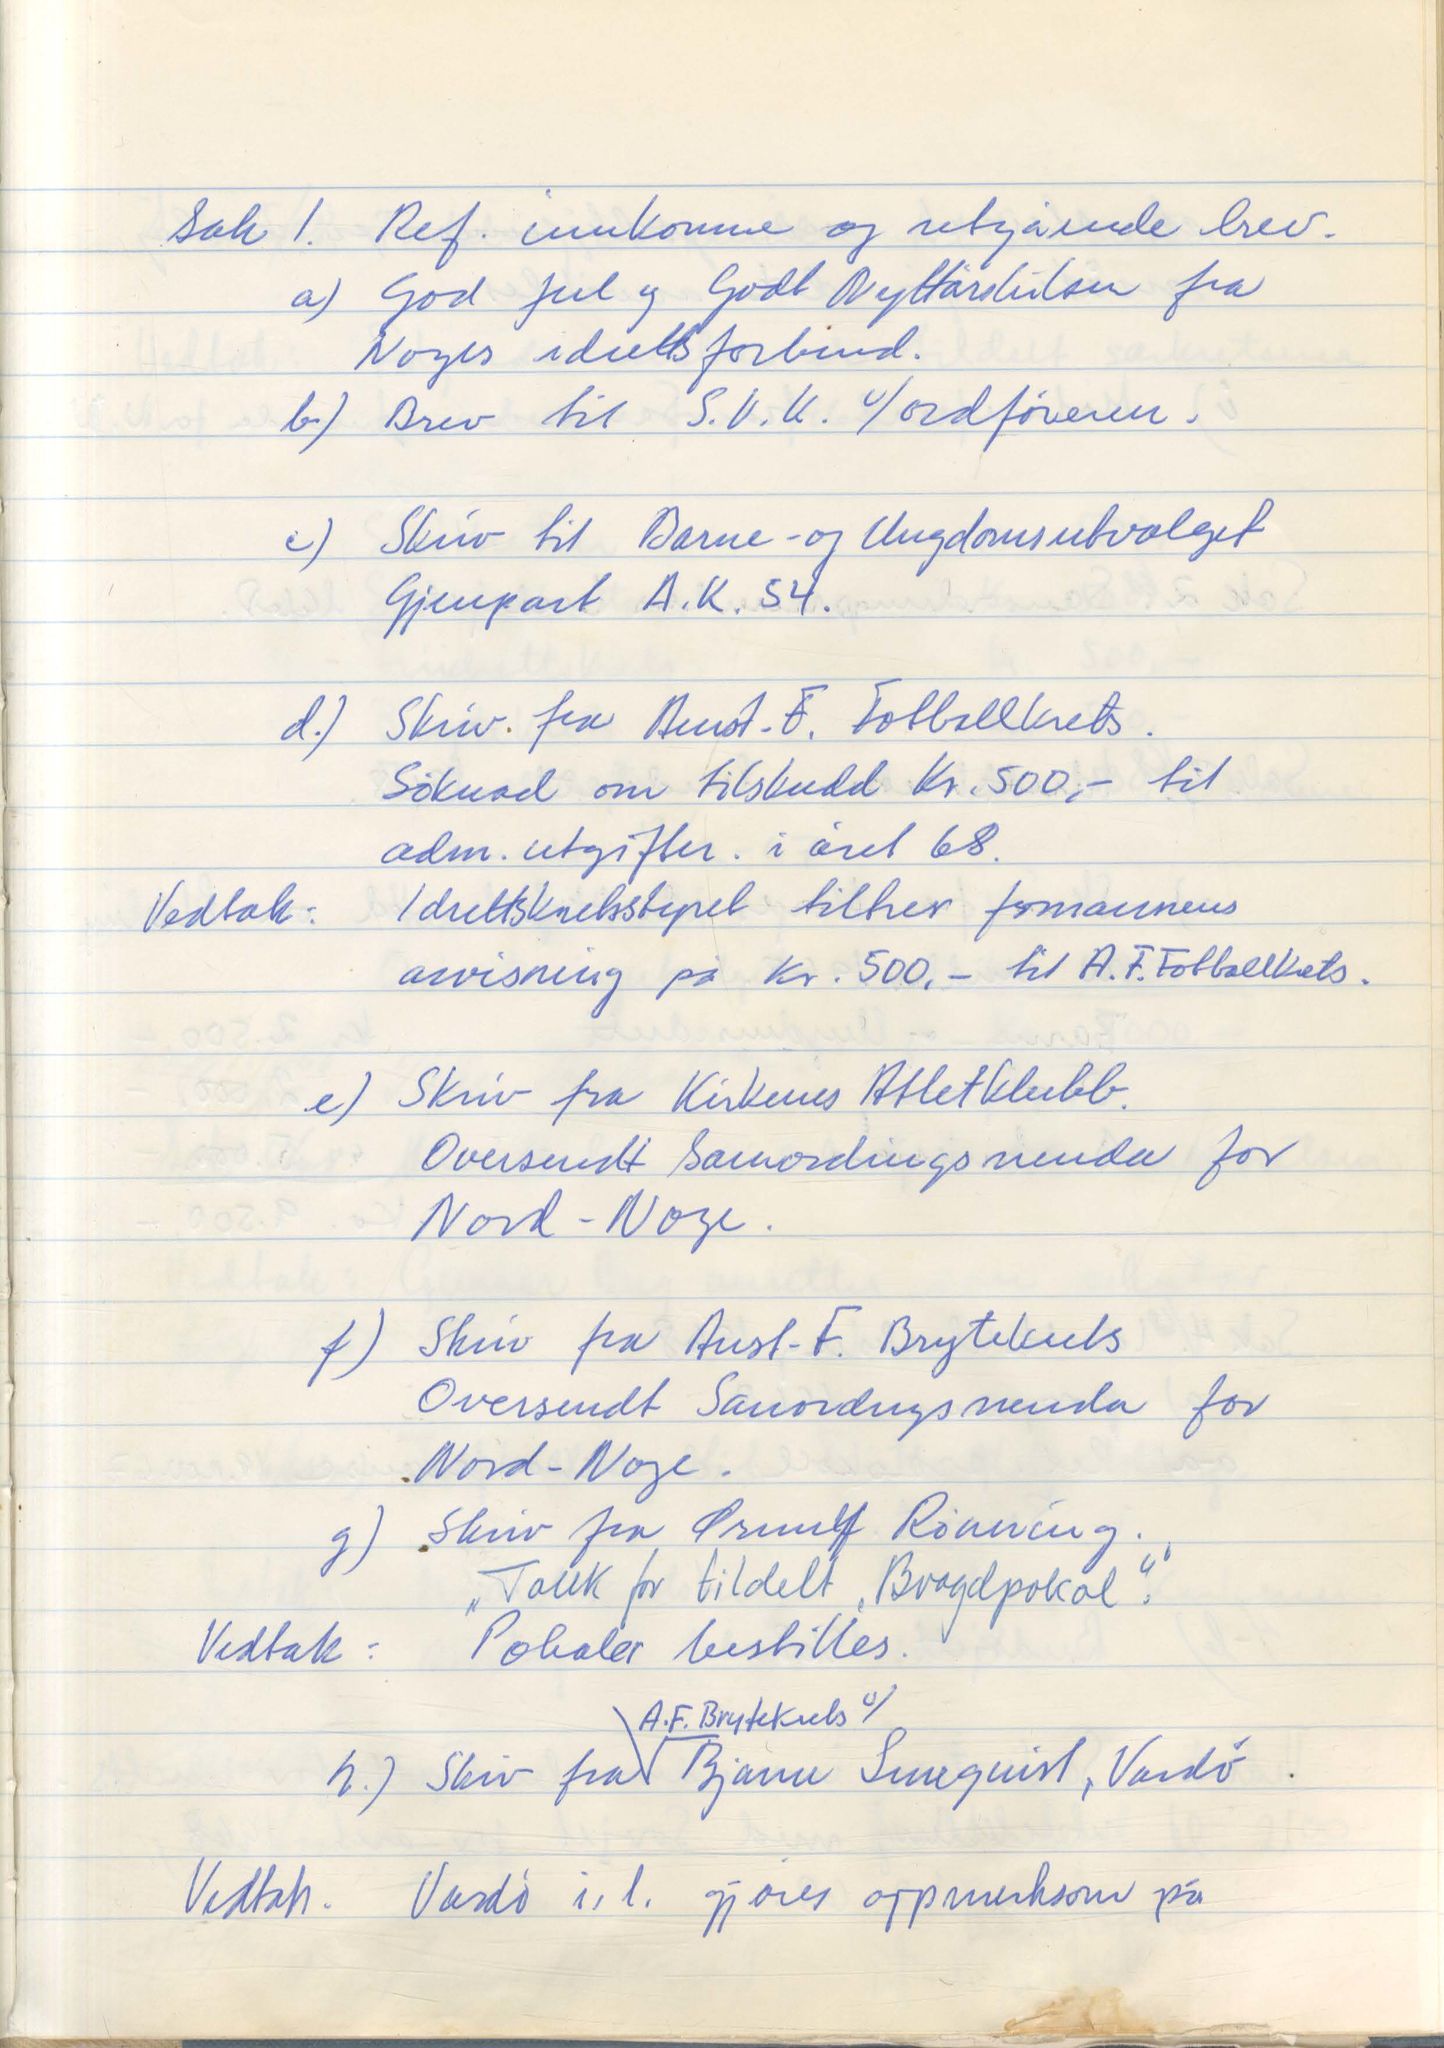 Sak 1. Ref. innkomne og utgående brev.
a) God jul og Godt Nyttårshilsen fra
Noges idrettsforbund.
b.) Brev til S.V.K. v/ordføreren.
c) Skriv til Barne- og Ungdomsutvalget
Gjenpart A.K. 54.
d.) Skriv. fra Aust-F. Fotballkrets.
Söknad om tilskudd Kr. 500,- til
adm. utgifter. i året 68.
Vedtak: Idrettskretsstyret tiltrer formannens
anvisning på Kr. 500,- til A.F. Fotballkrets.
e) Skriv fra Kirkenes Atletklubb.
Oversendt Samordingsnenda for
Nord-Noge.
f) Skriv fra Aust-F. Brytekrets
Oversendt Samordngsnenda for
Nord-Noge.
g) Skriv fra Ørnulf Rönning.
„Takk for tildelt „Bragdpokal".
Vedtak: Pokaler bestilles.
A.F. Brytekrets v/
h.) Skriv fra Bjarne, Vardö.
Vedtak. Vardö i.l. gjöres oppmerksom på